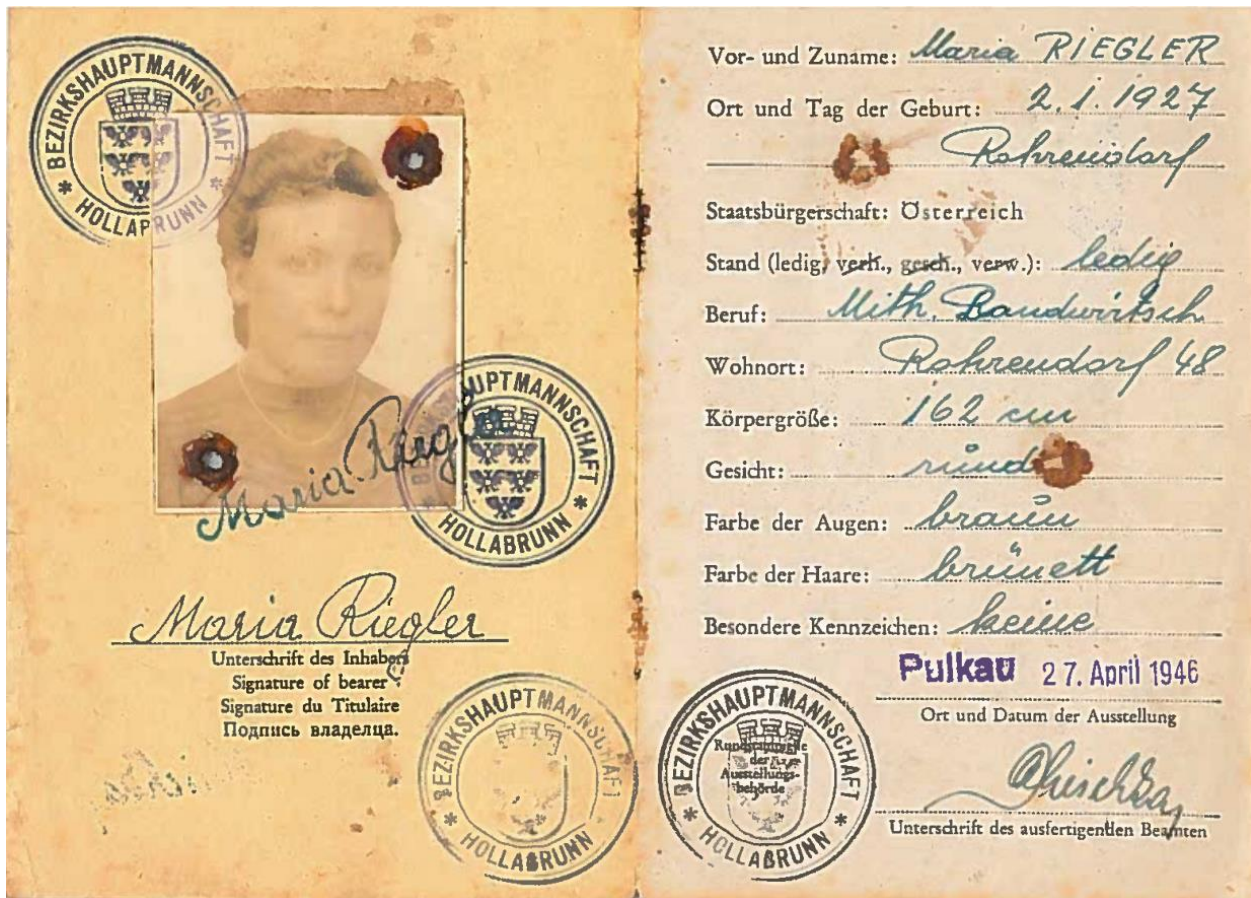 BEZIRKSHAUPTMANNSCHAFT
* HOLLABRUNN *
Maria Riegler
BEZIRKSHAUPTMANNSCHAFT
* HOLLABRUNN *
Maria Riegler
Unterschrift des Inhabers
Signature of bearer
Signature du Titulaire
Подпись владелца.
BEZIRKSHAUPTMANNSCHAFT
* HOLLABRUNN *
Vor- und Zuname: Maria RIEGLER
Ort und Tag der Geburt: 2.1.1927
Rohrendorf
Staatsbürgerschaft: Österreich
Stand (ledig, verh., gesch., verw.): ledig
Beruf: Mith. Landwirtsch
Wohnort: Rohrendorf 48
Körpergröße: 162 cm
Gesicht: rund
Farbe der Augen: braun
Farbe der Haare: brünett
Besondere Kennzeichen: keine
Pulkau 27. April 1946
Ort und Datum der Ausstellung
BEZIRKSHAUPTMANNSCHAFT
Rundstampiglie
der
Ausstellungs-
behörde
* HOLLABRUNN *
Unterschrift des ausfertigenden Beamten